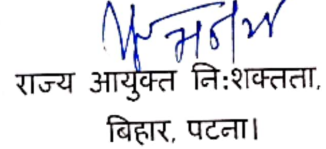 राज्य आयुक्त नि:शक्तता,
बिहार, पटना।